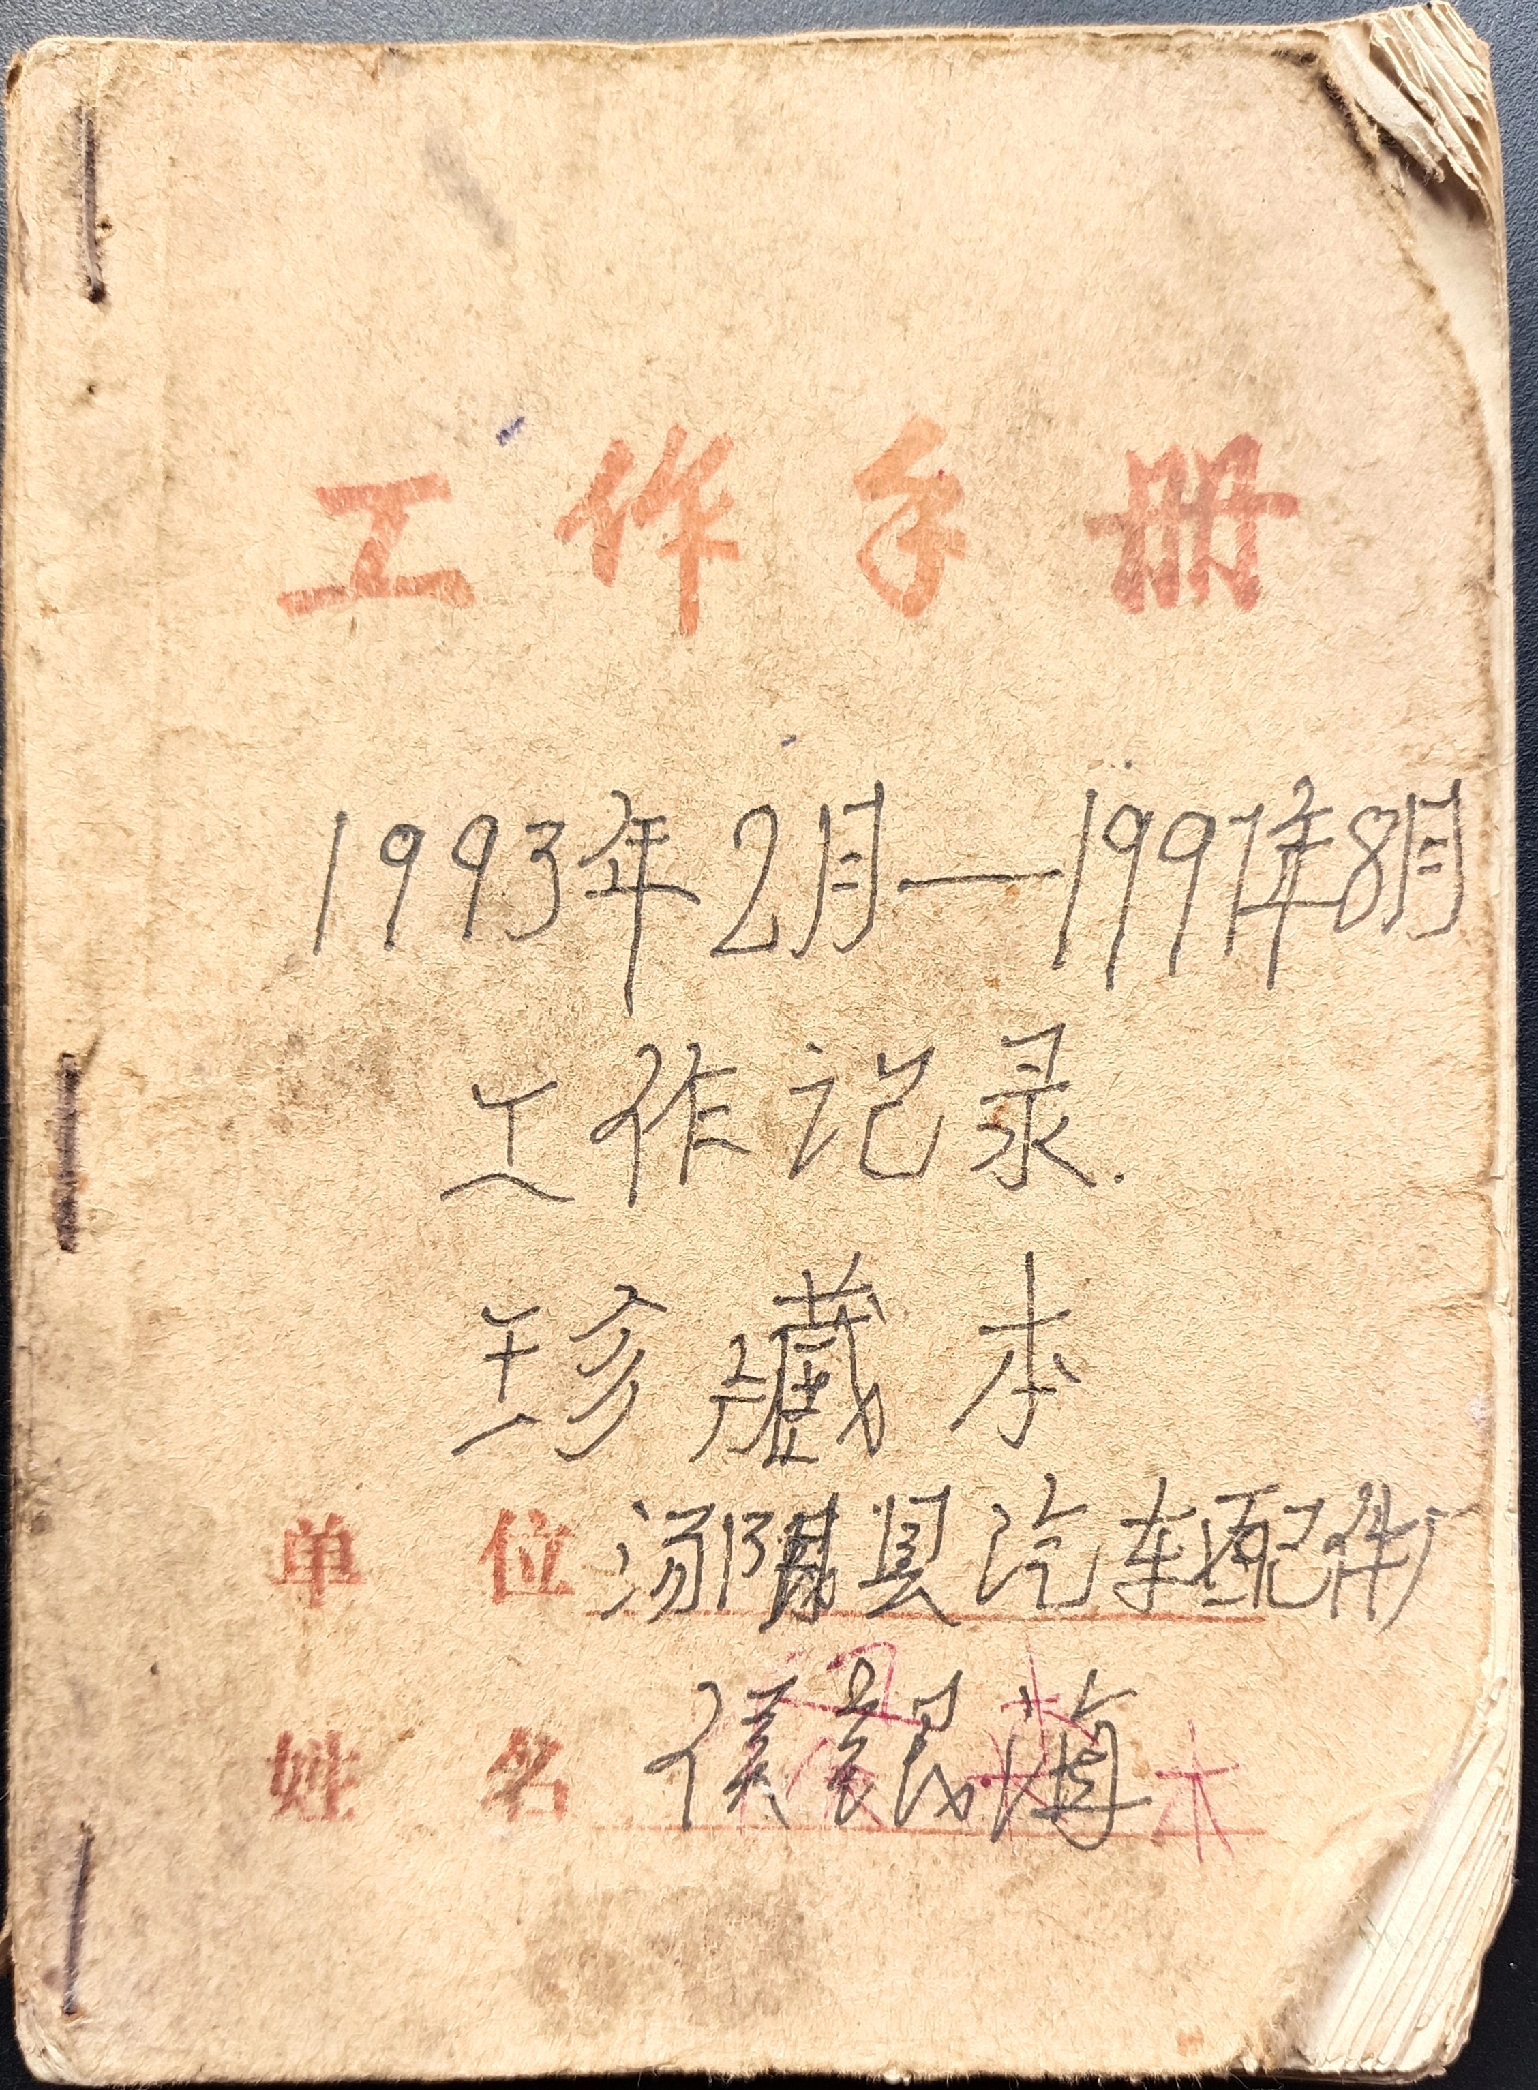 工作手册
1993年2月—1997年8月
工作记录.
珍藏本
单位 汤阴县汽车配件厂
姓名 侯